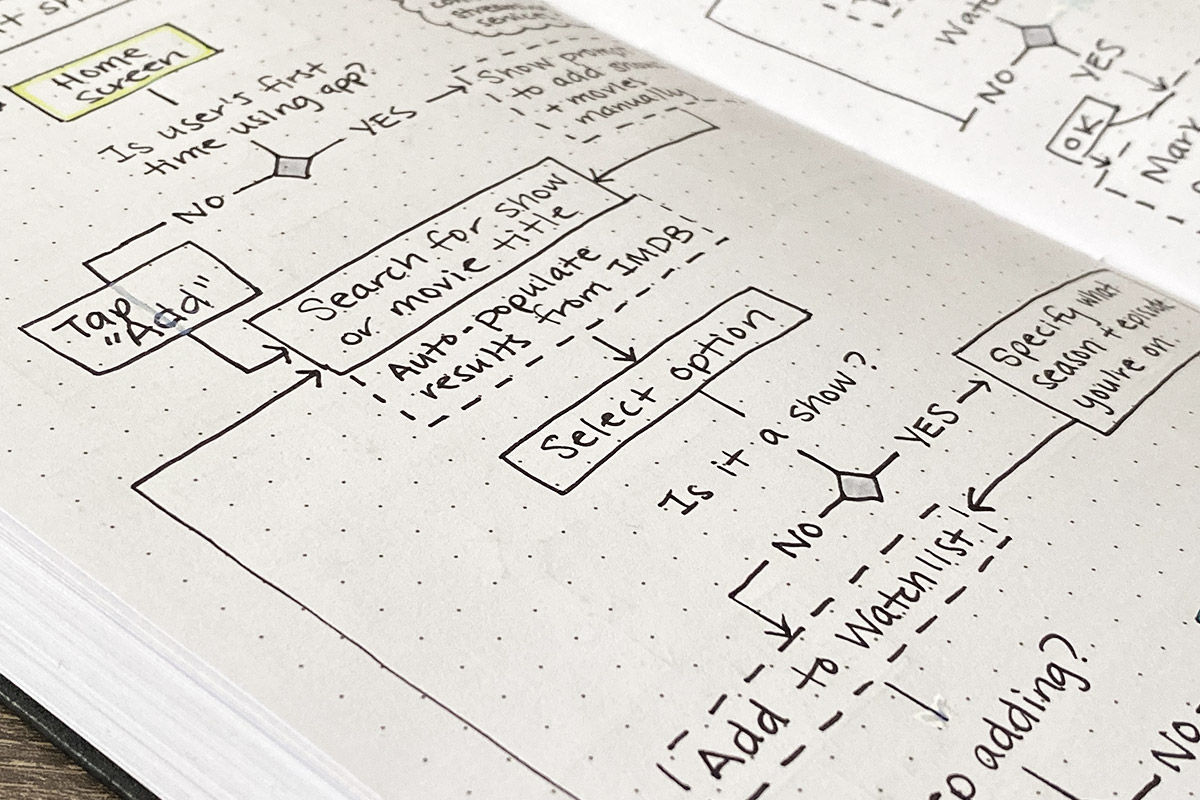 Home
Screen
Is user's first
time using app?
YES
NO
Show prompt
to add show
+ movies
manually
Tap
"Add"
Search for show
or movie title
Auto-populate
results from IMDB
Select option
Is it a show?
YES
NO
Specify what
season + episode
you're on.
Add to Watchlist
adding?
No
NO
YES
OK
Mark